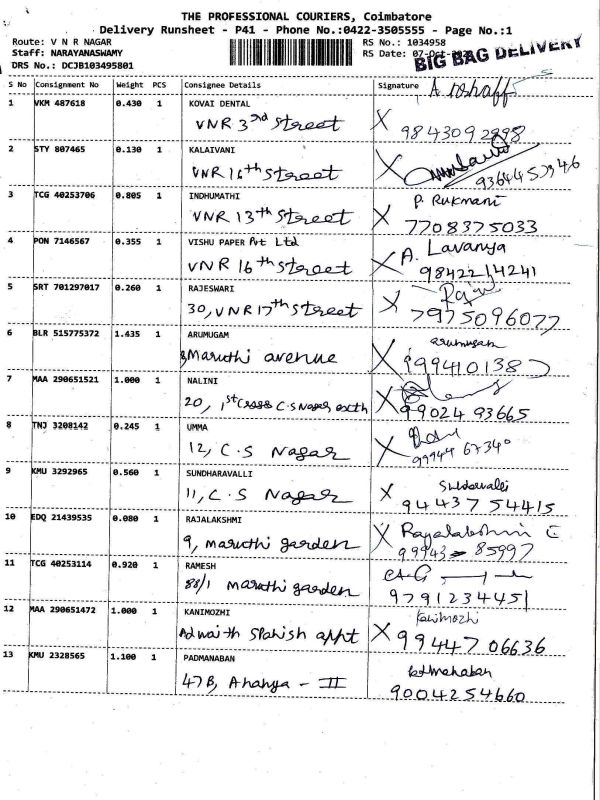 THE PROFESSIONAL COURIERS, Coimbatore
Delivery Runsheet - P41 - Phone No.:0422-3505555 - Page No.:1
Route: V N R NAGAR RS No.: 1034958
Staff: NARAYANASWAMY RS Date: 07-Oct-
DRS No.: DCJB103495801 BIG BAG DELIVERY
S No Consignment No Weight PCS Consignee Details Signature
1 VKM 487618 0.430 1 KOVAI DENTAL
VNR 3rd street X 9843092898
2 STY 807465 0.130 1 KALAIVANI
VNR 16th street X
3 TCG 40253706 0.805 1 INDHUMATHI P. Rukmani
VNR 13th street X 7708375033
4 PON 7146567 0.355 1 VISHU PAPER Pvt Ltd A. Lavanya
VNR 16th street X 9842214241
5 SRT 701297017 0.260 1 RAJESWARI
30, VNR 17th street X 7975096077
6 BLR 515775372 1.435 1 ARUMUGAM arumugam
Maruthi avenue X
7 MAA 290651521 1.000 1 NALINI
20, 1st Cross C.S Nagar X 99024 93665
8 TNJ 3208142 0.245 1 UMMA
12, C.S Nagar X 99944 67340
9 KMU 3292965 0.560 1 SUNDHARAVALLI
11, C.S Nagar X 94437 54415
10 EDQ 21439535 0.080 1 RAJALAKSHMI Rajalakshmi
9, maruthi garden X 99943 - 85997
11 TCG 40253114 0.920 1 RAMESH
88/1 maruthi garden 9791234451
12 MAA 290651472 1.000 1 KANIMOZHI Kanimozhi
Adwaith Spanish appt X 99447 06636
13 KMU 2328565 1.100 1 PADMANABAN
47B, Ananya - III 9004254660